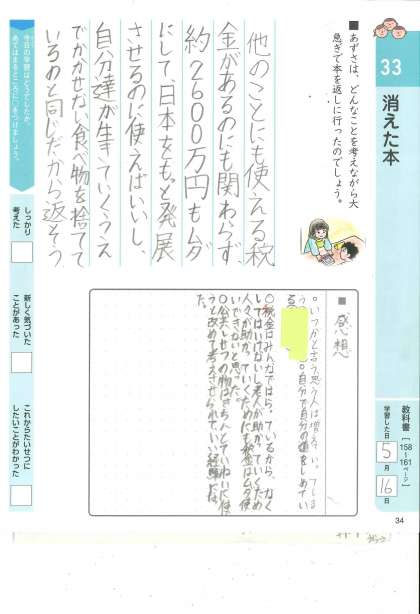 33
消えた本
■あずさは、どんなことを考えながら大
急ぎで本を返しに行ったのでしょう。
他のことにも使える税
金があるのにも関わらず、
約2600万円もムダ
にして、日本をもっと発展
させるのに使えばいいし、
自分達が生きていくうえ
でかかせない食べ物を捨てて
いるのと同じだから返そう
■感想
○いつかと言う思う人は増
○自分で自分の
○税金はみんなではらっているから、なく
してはいけないし老人が助かっていくため
人々が助かっていくためにも税金はムダ使
いできないと思った。
う と改めて考えさせられていい経験だ
た。
教科書
[158~161ページ]
学習した日
5月16日
34
今日の学習はどうでしたか。
あてはまるところに○をつけましょう。
しっかり
考えた
新しく気づいた
ことがあった
これからたいせつに
したいことがわかった